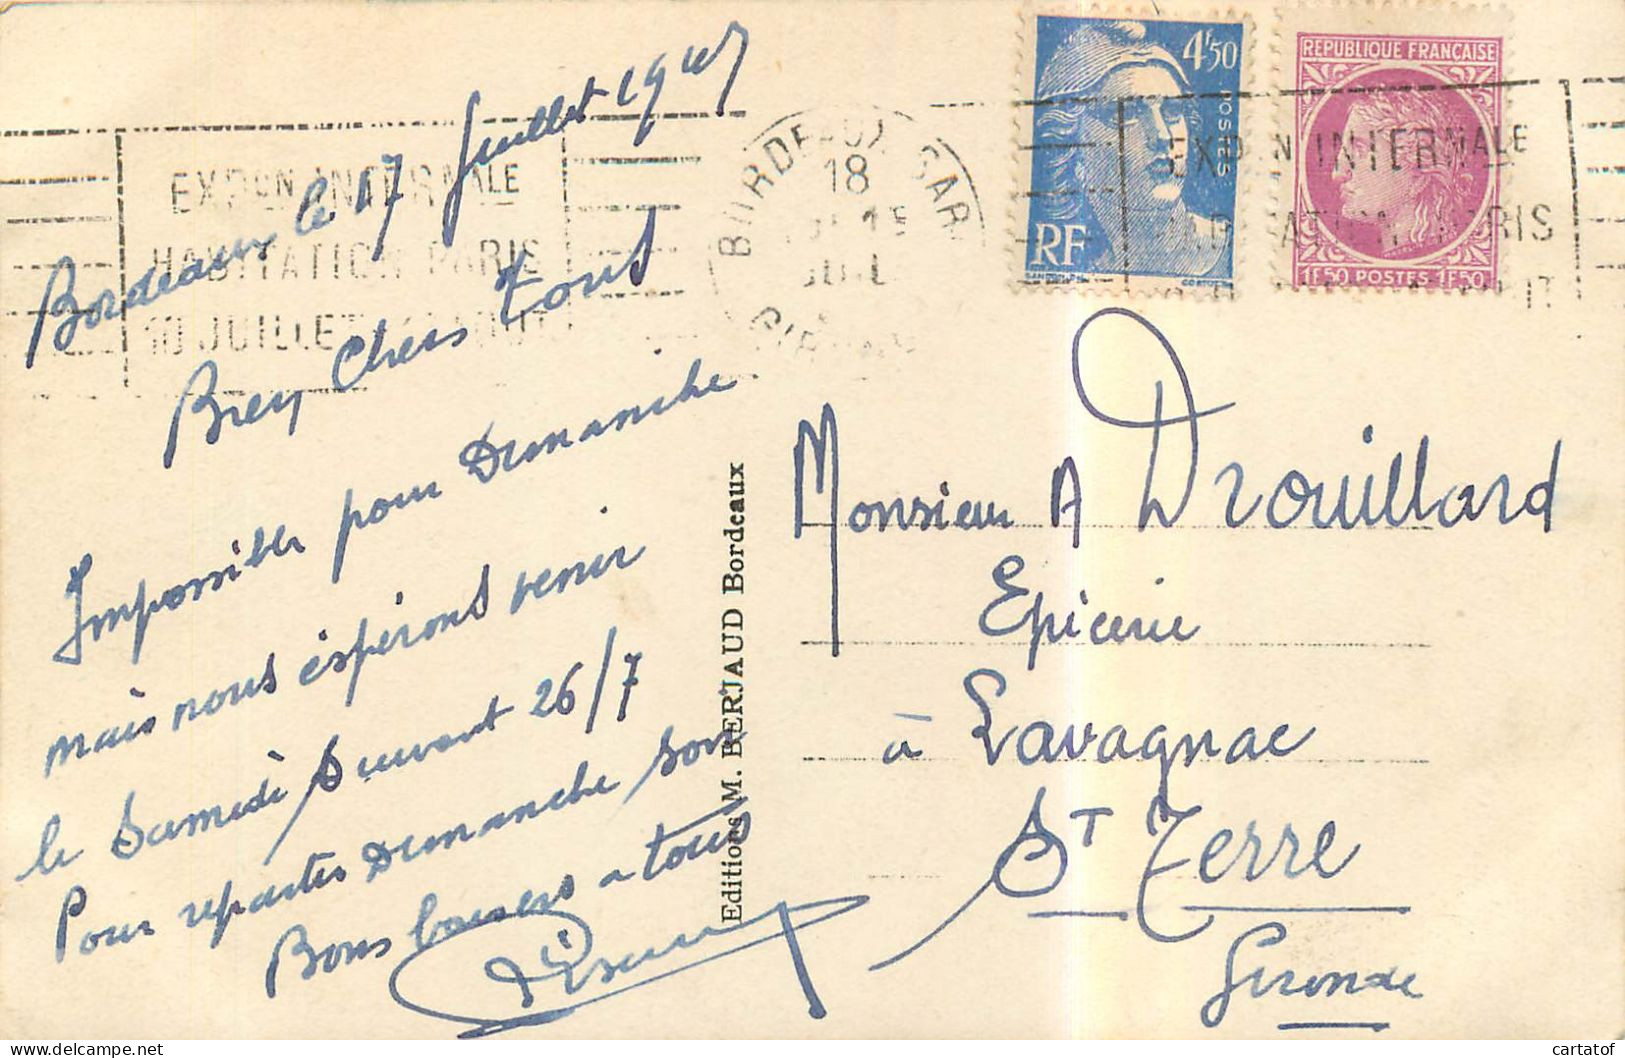 Bordeaux le 17 Juillet 1947
Bien Chers tous
Impossible pour Dimanche
mais nous espérons venir
le Samedi Suivant 26/7
Pour repartir Dimanche soir
Bons baisers a tous
Editions M. BERJAUD Bordeaux
EXPON INTERNALE
HABITATION PARIS
10 JUILLET
BORDEAUX GARE
18
GIRONDE
4F50
POSTES
RF
GANDON
REPUBLIQUE FRANÇAISE
1F50 POSTES 1F50
EXPON INTERNALE
PARIS
Monsieur A Drouillard
Epicerie
à Lavagnac
ST Terre
Gironde
cartatof